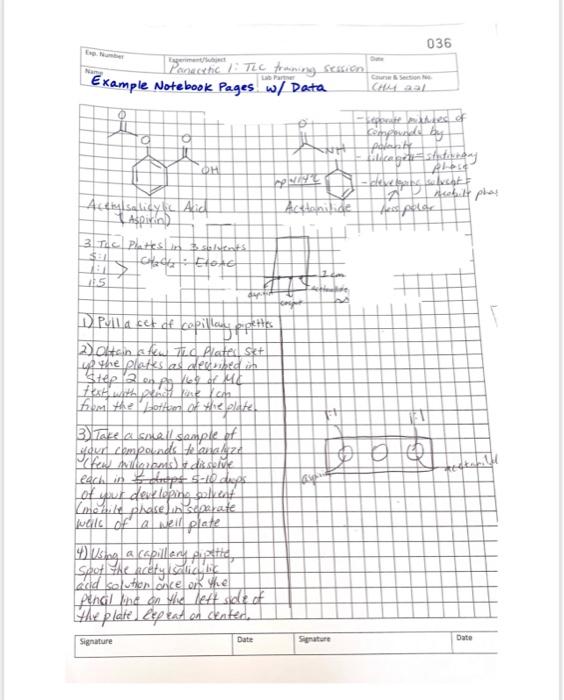 036
Exp. Number
Experiment/Subject
Date
Panacetic 1: TLC training session
Name
Lab Partner
Course & Section No.
Example Notebook Pages w/ Data
CHM 221
O
O
O
OH
Acetylsalicylic Acid
(Aspirin)
O
NH
mp 114°C
Acetanilide
- separate mixtures of
compounds by
polarity
- silica gel = stationary
phase
- developing solvent =
mobile phas
less polar
3 TLC Plates in 3 solvents
5:1
1:1 > CH2Cl2 : EtOAc
1:5
1 cm
aspirin
cospot
1) Pull a set of capillary pipettes
2) Obtain a few TLC Plates, Set
up the plates as described in
Step 2 on pg 169 of MC
text, with pencil line 1cm
from the bottom of the plate.
3) Take a small sample of
your compounds to analyze
(few milligrams) & dissolve
each in 5-10 drops
of your developing solvent
(mobile phase) in separate
wells of a well plate
1:1
1:1
aspirin
4) Using a capillary pipette,
Spot the acetylsalicylic
acid solution once on the
pencil line on the left side of
the plate. Repeat on center.
Signature
Date
Signature
Date